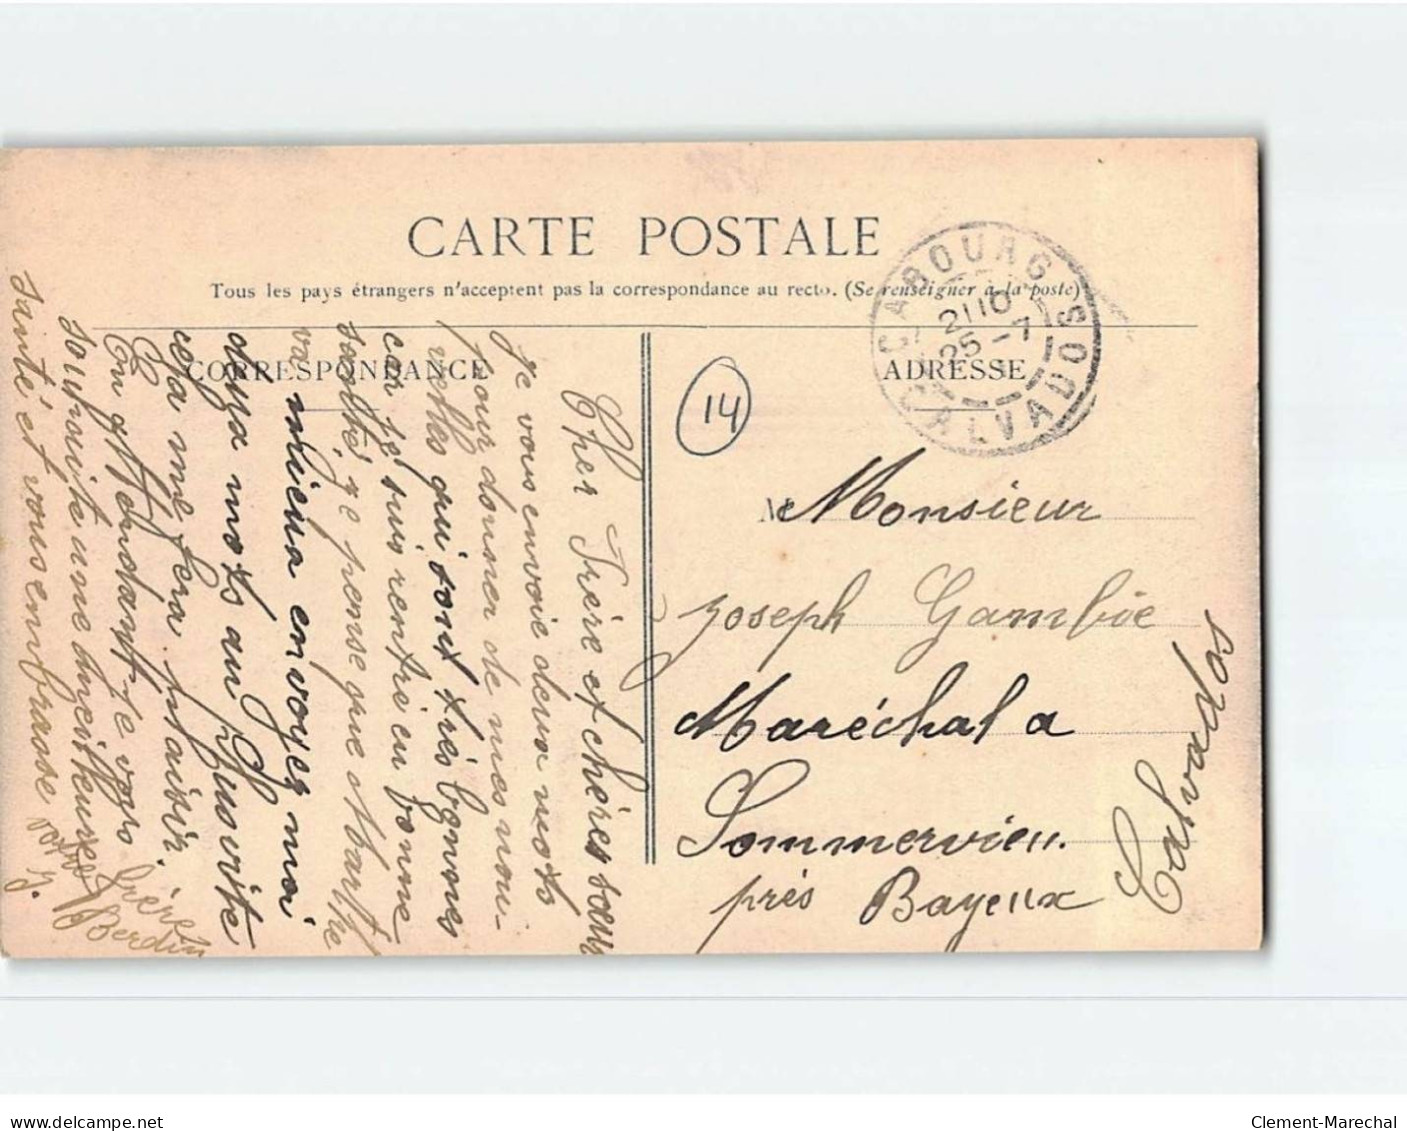 CARTE POSTALE
Tous les pays étrangers n'acceptent pas la correspondance au recto. (Se renseigner à la poste)
CORRESPONDANCE
ADRESSE
CABOURG
21 10
25 -7
CALVADOS
14
Monsieur
Joseph Gambie
Maréchal a
Sommervieu.
près Bayeux
Calvados
Cher Frère et chères sœurs
je vous envoie deux mots
pour donner de mes nou-
velles qui sont très bonnes
car je suis rentré en bonne
santé, je pense que Marthe
va mieux envoyez moi
deux mots au suivite
cela me fera plaisir.
En attendant je vous
souhaite une meilleure
santé et vous embrasse votre
frère
J. Berdin
Clement-Marechal
www.delcampe.net